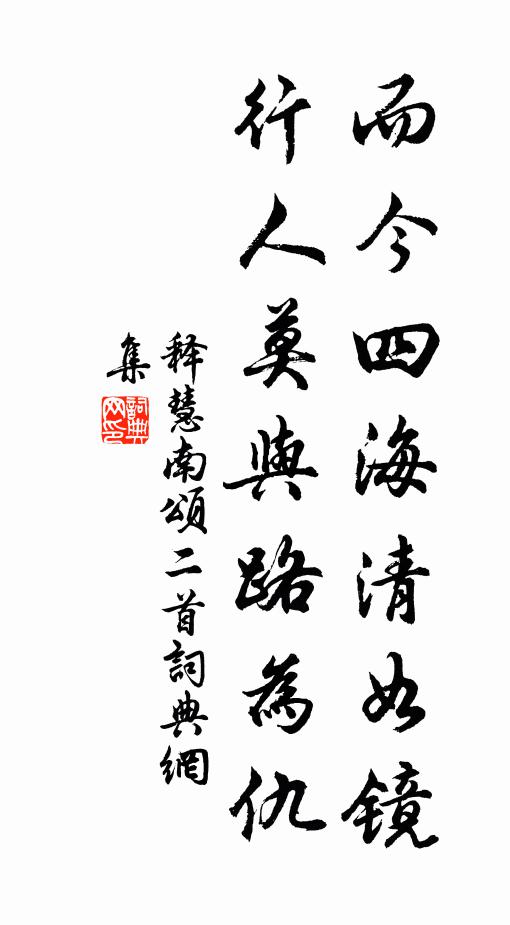 而今四海清如镜
行人莫與路為仇
释慧南頌二首詞典網
集
詞典
网印